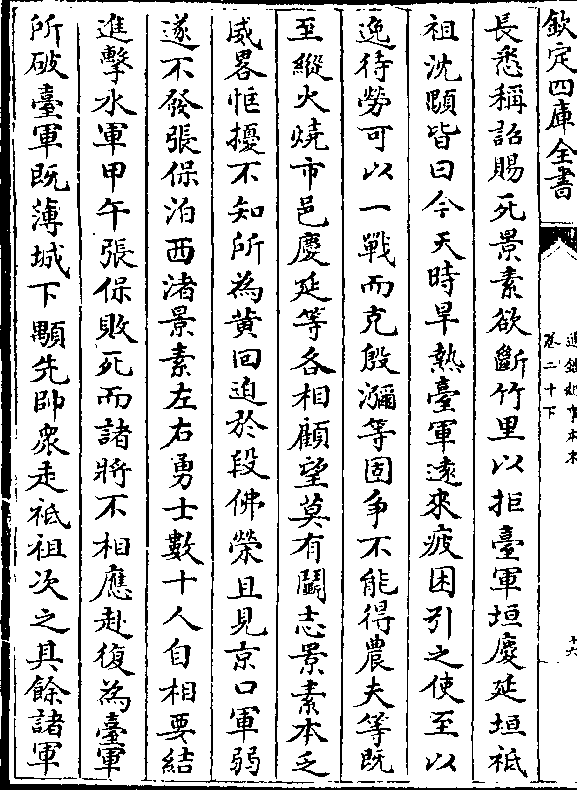 欽定四庫全書
通鑑紀事本末
卷二十下
十六
長悉稱詔賜死景素欲斷竹里以拒臺軍垣慶延垣祗
祖沈顒皆曰今天時旱熱臺軍遠來疲困引之使至以
逸待勞可以一戰而克殷瀰等固爭不能得農夫等既
至縱火燒市邑慶延等各相顧望莫有鬭志景素本乏
威畧恇擾不知所為黃回迫於段佛榮且見京口軍弱
遂不發張保泊西渚景素左右勇士數十人自相要結
進擊水軍甲午張保敗死而諸將不相應赴復為臺軍
所破臺軍既薄城下顒先帥衆走祗祖次之其餘諸軍